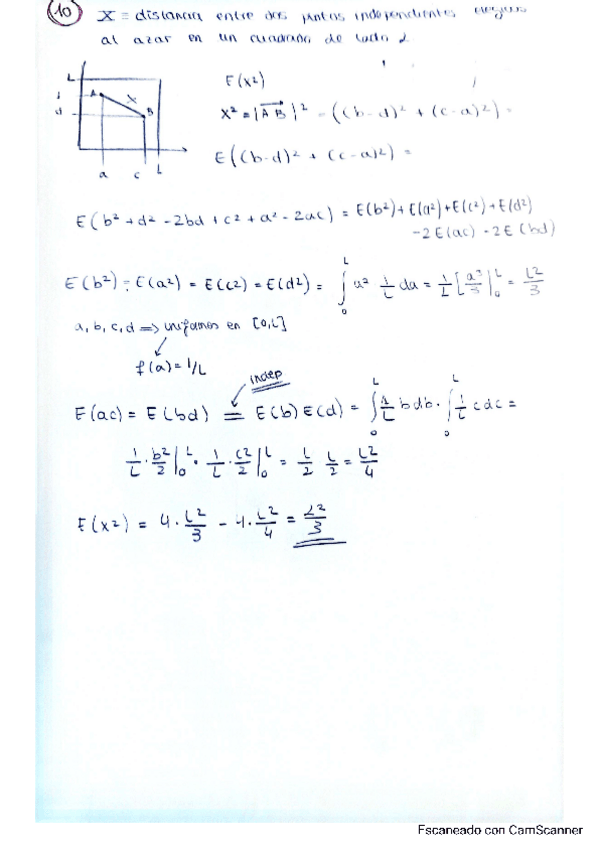 10 X ≡ distancia entre dos puntos independientes
al azar en un cuadrado de lado L
L
A X B
d
a c L
E(x²)
x² = |AB|² = ((b-d)² + (c-a)²) =
E((b-d)² + (c-a)²) =
E(b² + d² - 2bd + c² + a² - 2ac) = E(b²) + E(a²) + E(c²) + E(d²)
-2E(ac) - 2E(bd)
E(b²) = E(a²) = E(c²) = E(d²) = ∫₀ᴸ a² 1/L da = 1/L [a³/3]₀ᴸ = L²/3
a, b, c, d => uniformes en [0,L]
f(a) = 1/L
indep
E(ac) = E(bd) = E(b) E(d) = ∫₀ᴸ 1/L b db · ∫₀ᴸ 1/L c dc =
1/L · b²/2 |₀ᴸ · 1/L · c²/2 |₀ᴸ = L/2 L/2 = L²/4
E(x²) = 4 · L²/3 - 4 · L²/4 = L²/3
Escaneado con CamScanner